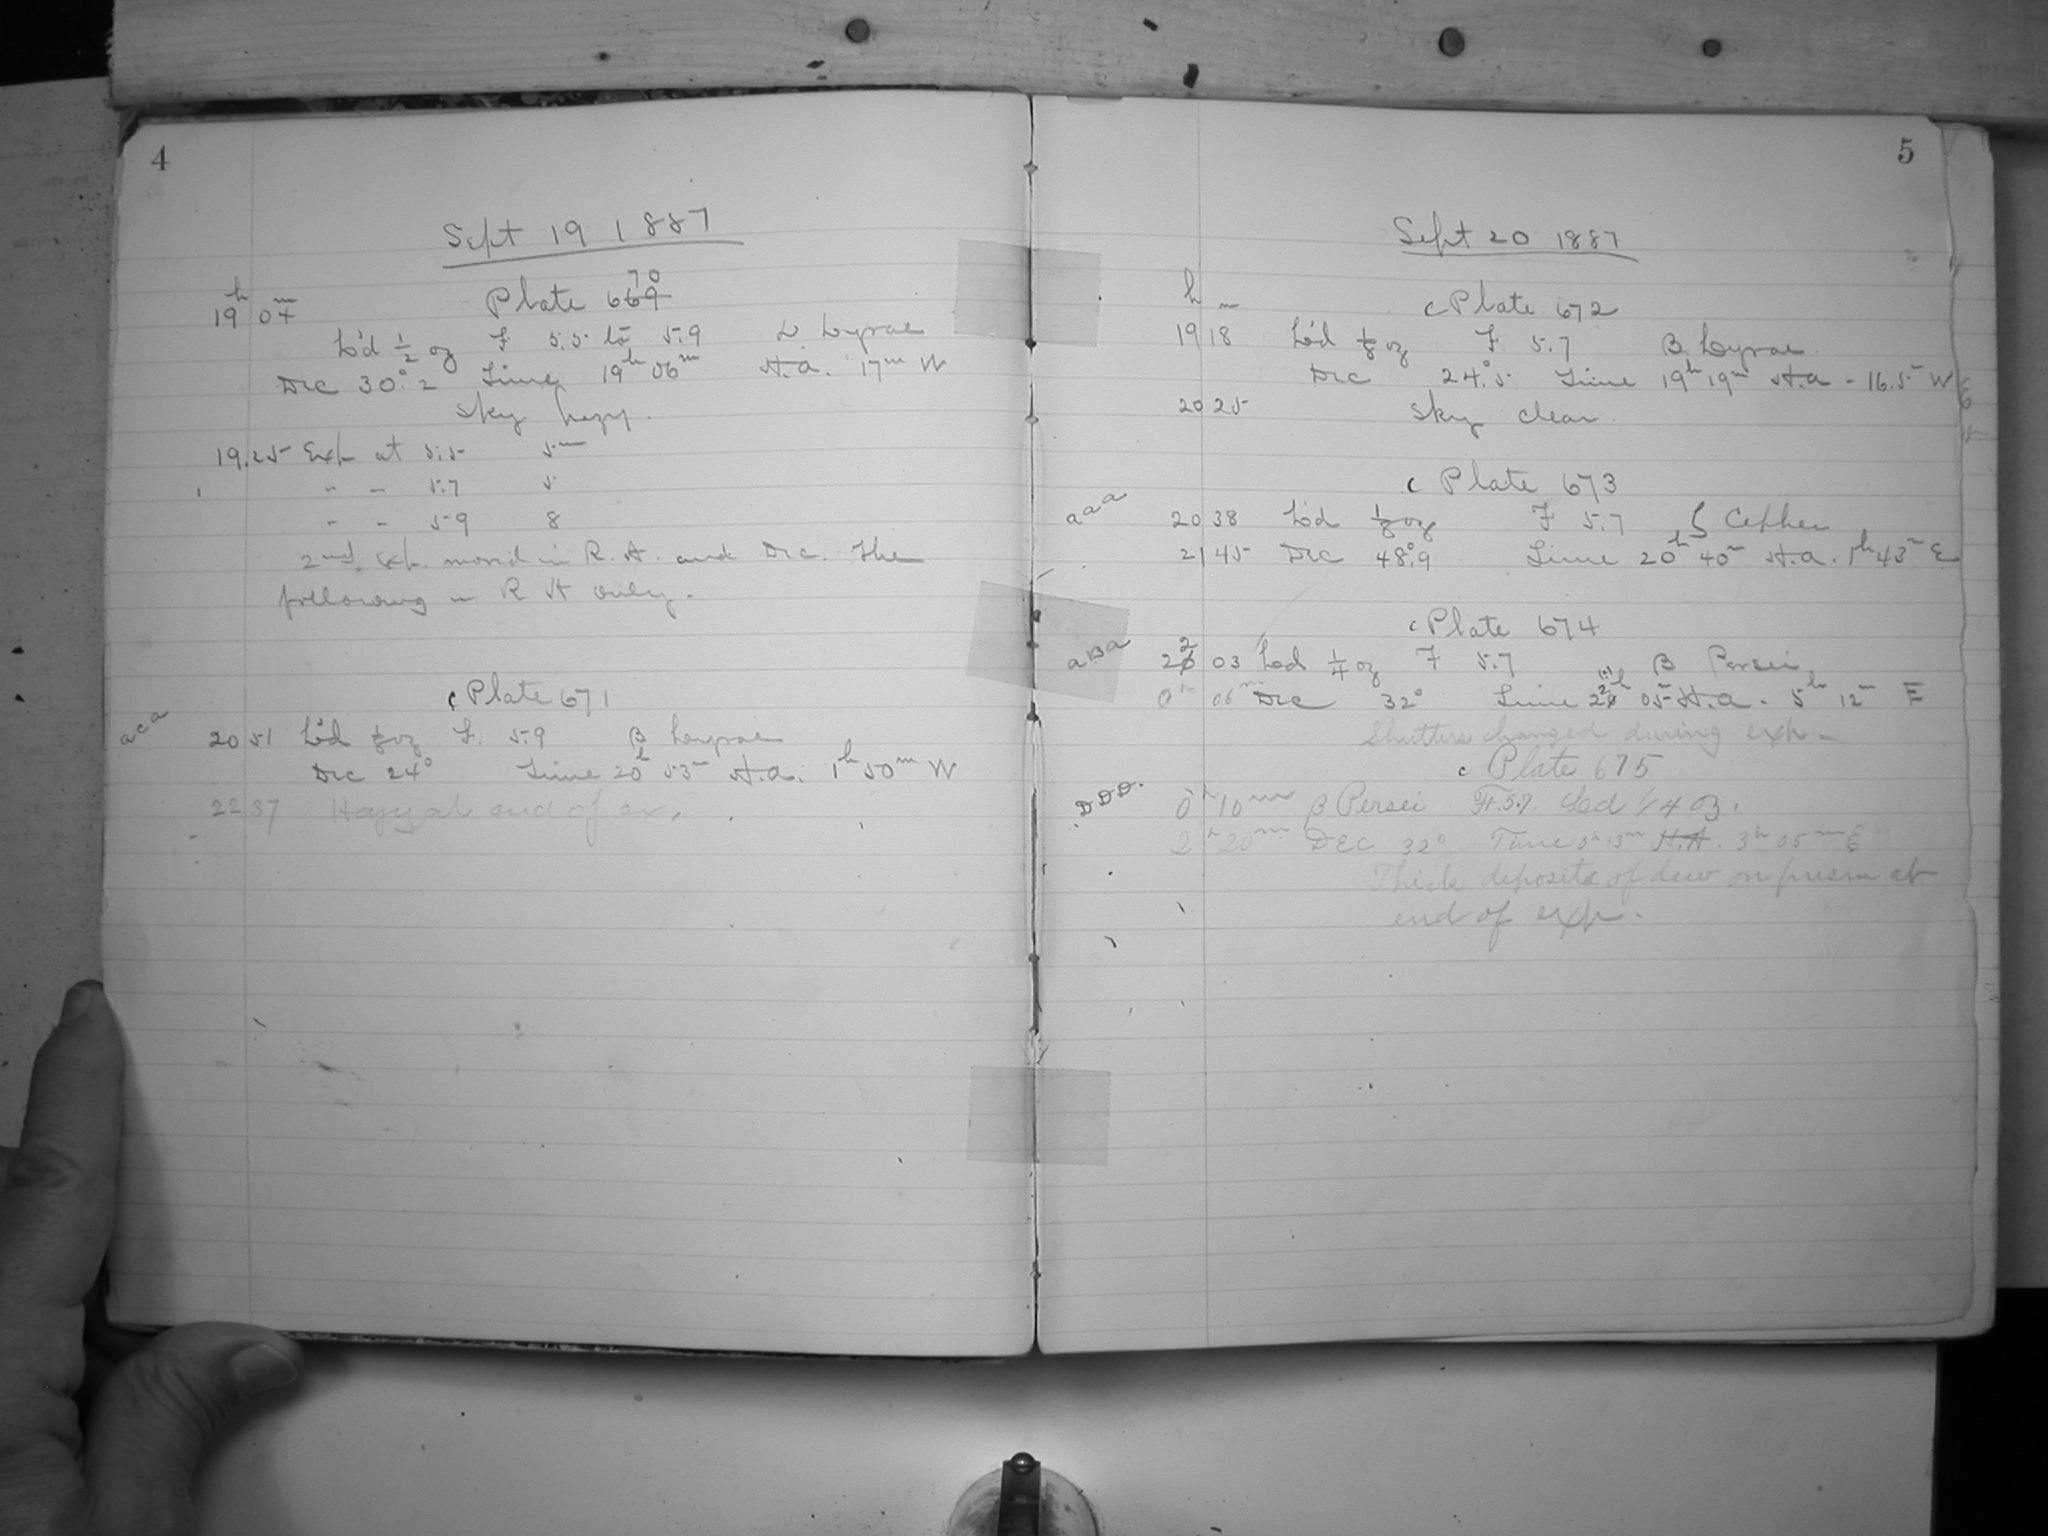 4
Sept 19 1887
19h 07m Plate 670
L'd 1/2 oz F 5.5 to 5.9 α Lyrae
Dec 30°.2 Time 19h 06m H.a. 17m W
Sky hazy.
19.25 Exp at 5.5 5m
" " 5.7 5
" " 5.9 8
2nd exp. moved in R.A. and Dec. the
following in R A only.
c Plate 671
aca
20 51 L'd 1/8 oz F. 5.9 β Lyrae
Dec 24° Time 20h 53m H.a. 1h 50m W
22 37 Hazy at end of ex.
5
Sept 20 1887
h m c Plate 672
19 18 L'd 1/8 oz F 5.7 β Lyrae
Dec 24°.5 Time 19h 19m H.a - 16.5 W
20 25 Sky clear.
c Plate 673
aaa
20 38 L'd 1/8 oz F 5.7 ζ Cephei
21 45 Dec 48°.9 Time 20h 40m H.a. 1h 43m E
c Plate 674
aBa
22 03 Lod 1/4 oz F 5.7 β Persei
0h 06m Dec 32° Time 22h 05 H.a. 5h 12m E
Shutters changed during exp.
c Plate 675
DDD.
0h 10m β Persei F. 5.7. Lcd 1/4 oz.
2h 20m Dec 32° Time 0h 13m H.A. 3h 05m E
Thick deposits of dew on prism at
end of exp.